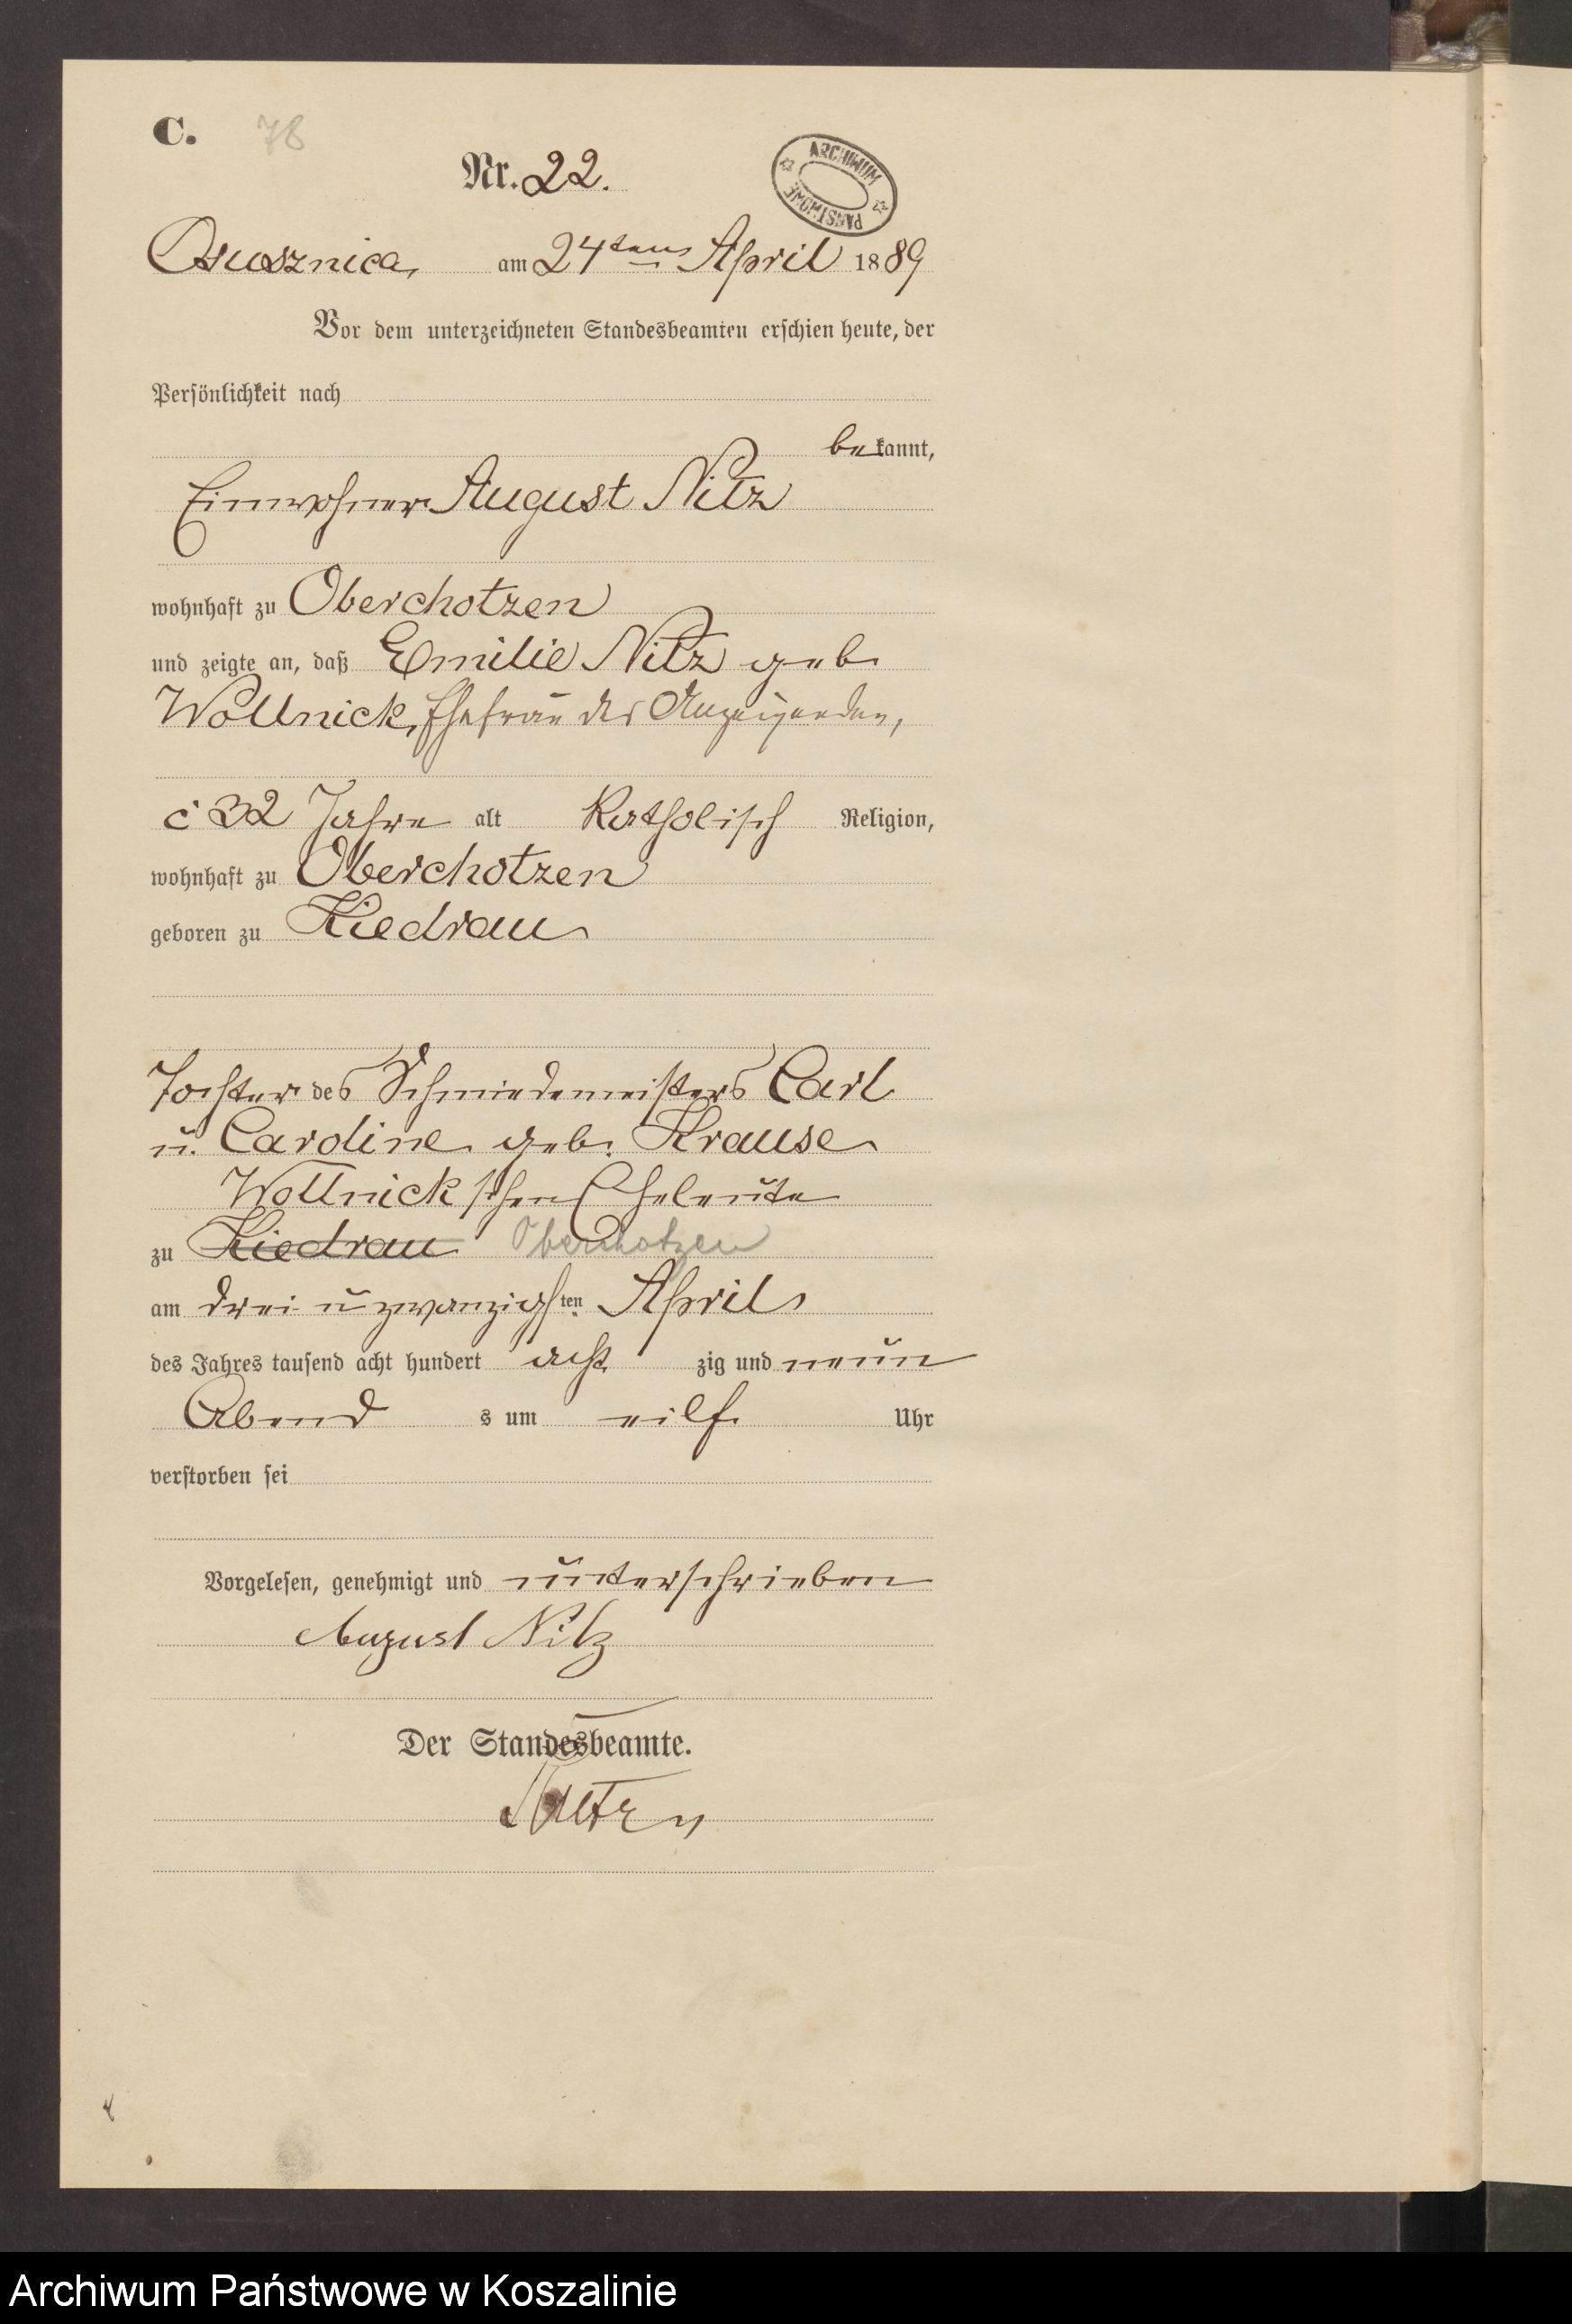 C. 78
Nr. 22.
ARCHIWUM PAŃSTWOWE
Ossusznica, am 24ten April 1889
Vor dem unterzeichneten Standesbeamten erschien heute, der
Persönlichkeit nach
bekannt,
Einwohner August Nitz
wohnhaft zu Oberchotzen
und zeigte an, daß Emilie Nitz geb.
Wollnick, Ehefrau des Anzeigenden,
c 32 Jahre alt Katholisch Religion,
wohnhaft zu Oberchotzen
geboren zu Kiedrau
Tochter des Schmiedemeisters Carl
u. Caroline geb. Krause
Wollnick'schen Eheleute
zu Kiedrau Oberchotzen
am drei u zwanzigsten April
des Jahres tausend acht hundert acht zig und neun
Abend s um eilf Uhr
verstorben sei
Vorgelesen, genehmigt und unterschrieben
August Nitz
Der Standesbeamte.
Archiwum Państwowe w Koszalinie